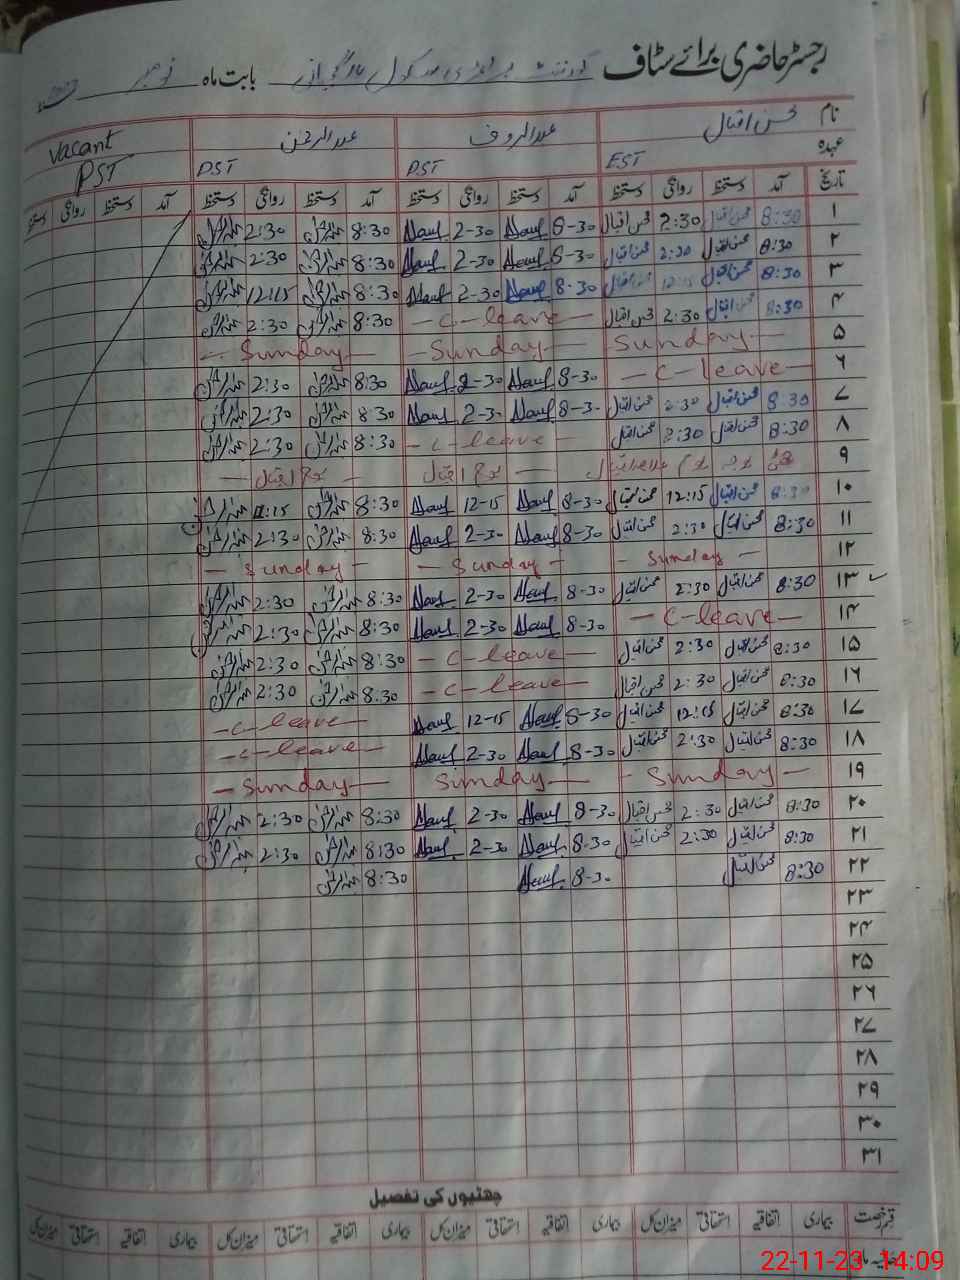 رجسٹر حاضری برائے سٹاف گورنمنٹ سکول بابت ماہ نومبر
نام محسن اقبال عبدالروف عبدالرحمن Vacant
عہدہ EST PST PST PST
تاریخ آمد دستخط روانگی دستخط آمد دستخط روانگی دستخط آمد دستخط روانگی دستخط آمد دستخط روانگی دستخط
۱ 8:30 محسن اقبال 2:30 محسن اقبال 8-30 Aauf 2-30 Aauf 8:30 2:30
۲ 8:30 محسن اقبال 2:30 محسن اقبال 8-30 Aauf 2-30 Aauf 8:30 2:30
۳ 8:30 محسن اقبال 12:15 محسن اقبال 8-30 Aauf 2-30 Aauf 8:30 12:15
۴ 8:30 محسن اقبال 2:30 محسن اقبال - C - leave - 8:30 2:30
۵ Sunday - - Sunday - - Sunday -
۶ - C - leave - 8-30 Aauf 2-30 Aauf 8:30 2:30
۷ 8:30 محسن اقبال 2:30 محسن اقبال 8-30 Aauf 2-30 Aauf 8:30 2:30
۸ 8:30 محسن اقبال 2:30 محسن اقبال - C - leave - 8:30 2:30
۹ یوم اقبال یوم اقبال
۱۰ 8:30 محسن اقبال 12:15 محسن اقبال 8-30 Aauf 12-15 Aauf 8:30 12:15
۱۱ 8:30 محسن اقبال 2:30 محسن اقبال 8-30 Aauf 2-30 Aauf 8:30 2:30
۱۲ - Sunday - - Sunday - - Sunday -
۱۳ 8:30 محسن اقبال 2:30 محسن اقبال 8-30 Aauf 2-30 Aauf 8:30 2:30
۱۴ - C - leave - 8-30 Aauf 2-30 Aauf 8:30 2:30
۱۵ 8:30 محسن اقبال 2:30 محسن اقبال - C - leave - 8:30 2:30
۱۶ 8:30 محسن اقبال 2:30 محسن اقبال - C - leave - 8:30 2:30
۱۷ 8:30 محسن اقبال 12:15 محسن اقبال 8-30 Aauf 12-15 Aauf - C - leave
۱۸ 8:30 محسن اقبال 2:30 محسن اقبال 8-30 Aauf 2-30 Aauf - C - leave -
۱۹ - Sunday - Sunday - - Sunday -
۲۰ 8:30 محسن اقبال 2:30 محسن اقبال 8-30 Aauf 2-30 Aauf 8:30 2:30
۲۱ 8:30 محسن اقبال 2:30 محسن اقبال 8-30 Aauf 2-30 Aauf 8:30 2:30
۲۲ 8:30 محسن اقبال 8-30 Aauf 8:30
۲۳
۲۴
۲۵
۲۶
۲۷
۲۸
۲۹
۳۰
۳۱
چھٹیوں کی تفصیل
قسم رخصت بیماری اتفاقیہ استحقاقی میزان کل بیماری اتفاقیہ استحقاقی میزان کل بیماری اتفاقیہ استحقاقی میزان کل بیماری اتفاقیہ استحقاقی میزان کل
22-11-23 14:09